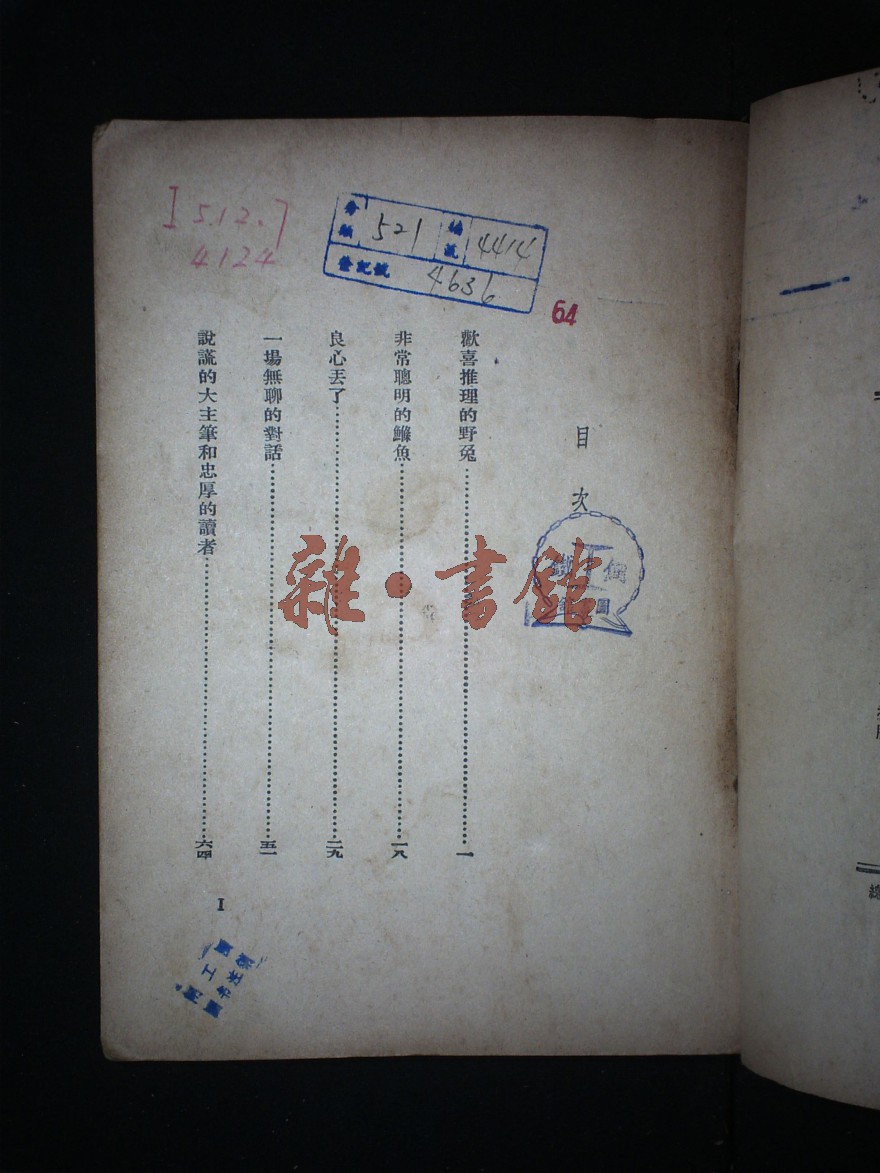 [512.]
4124
分類 521 編號 4414
登記號 4636
64
目次
歡喜推理的野兔……一
非常聰明的鱍魚……一八
良心丟了……二九
一場無聊的對話……五一
說謊的大主筆和忠厚的讀者……六四
I
雜·書館
鐵工
圖